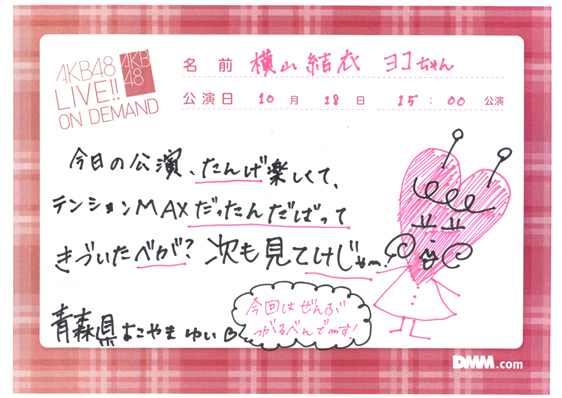 AKB48
LIVE!!
ON DEMAND
AKB
48
名前 横山結衣 ヨコちゃん
公演日 10月18日 15:00公演
今日の公演、たんげ楽しくて、
テンションMAXだったんだばって
きづいたべが?次も見てけじゃー。
青森県よこやまゆい
今回はぜんぶ
がるべんでーす!
DMM.com